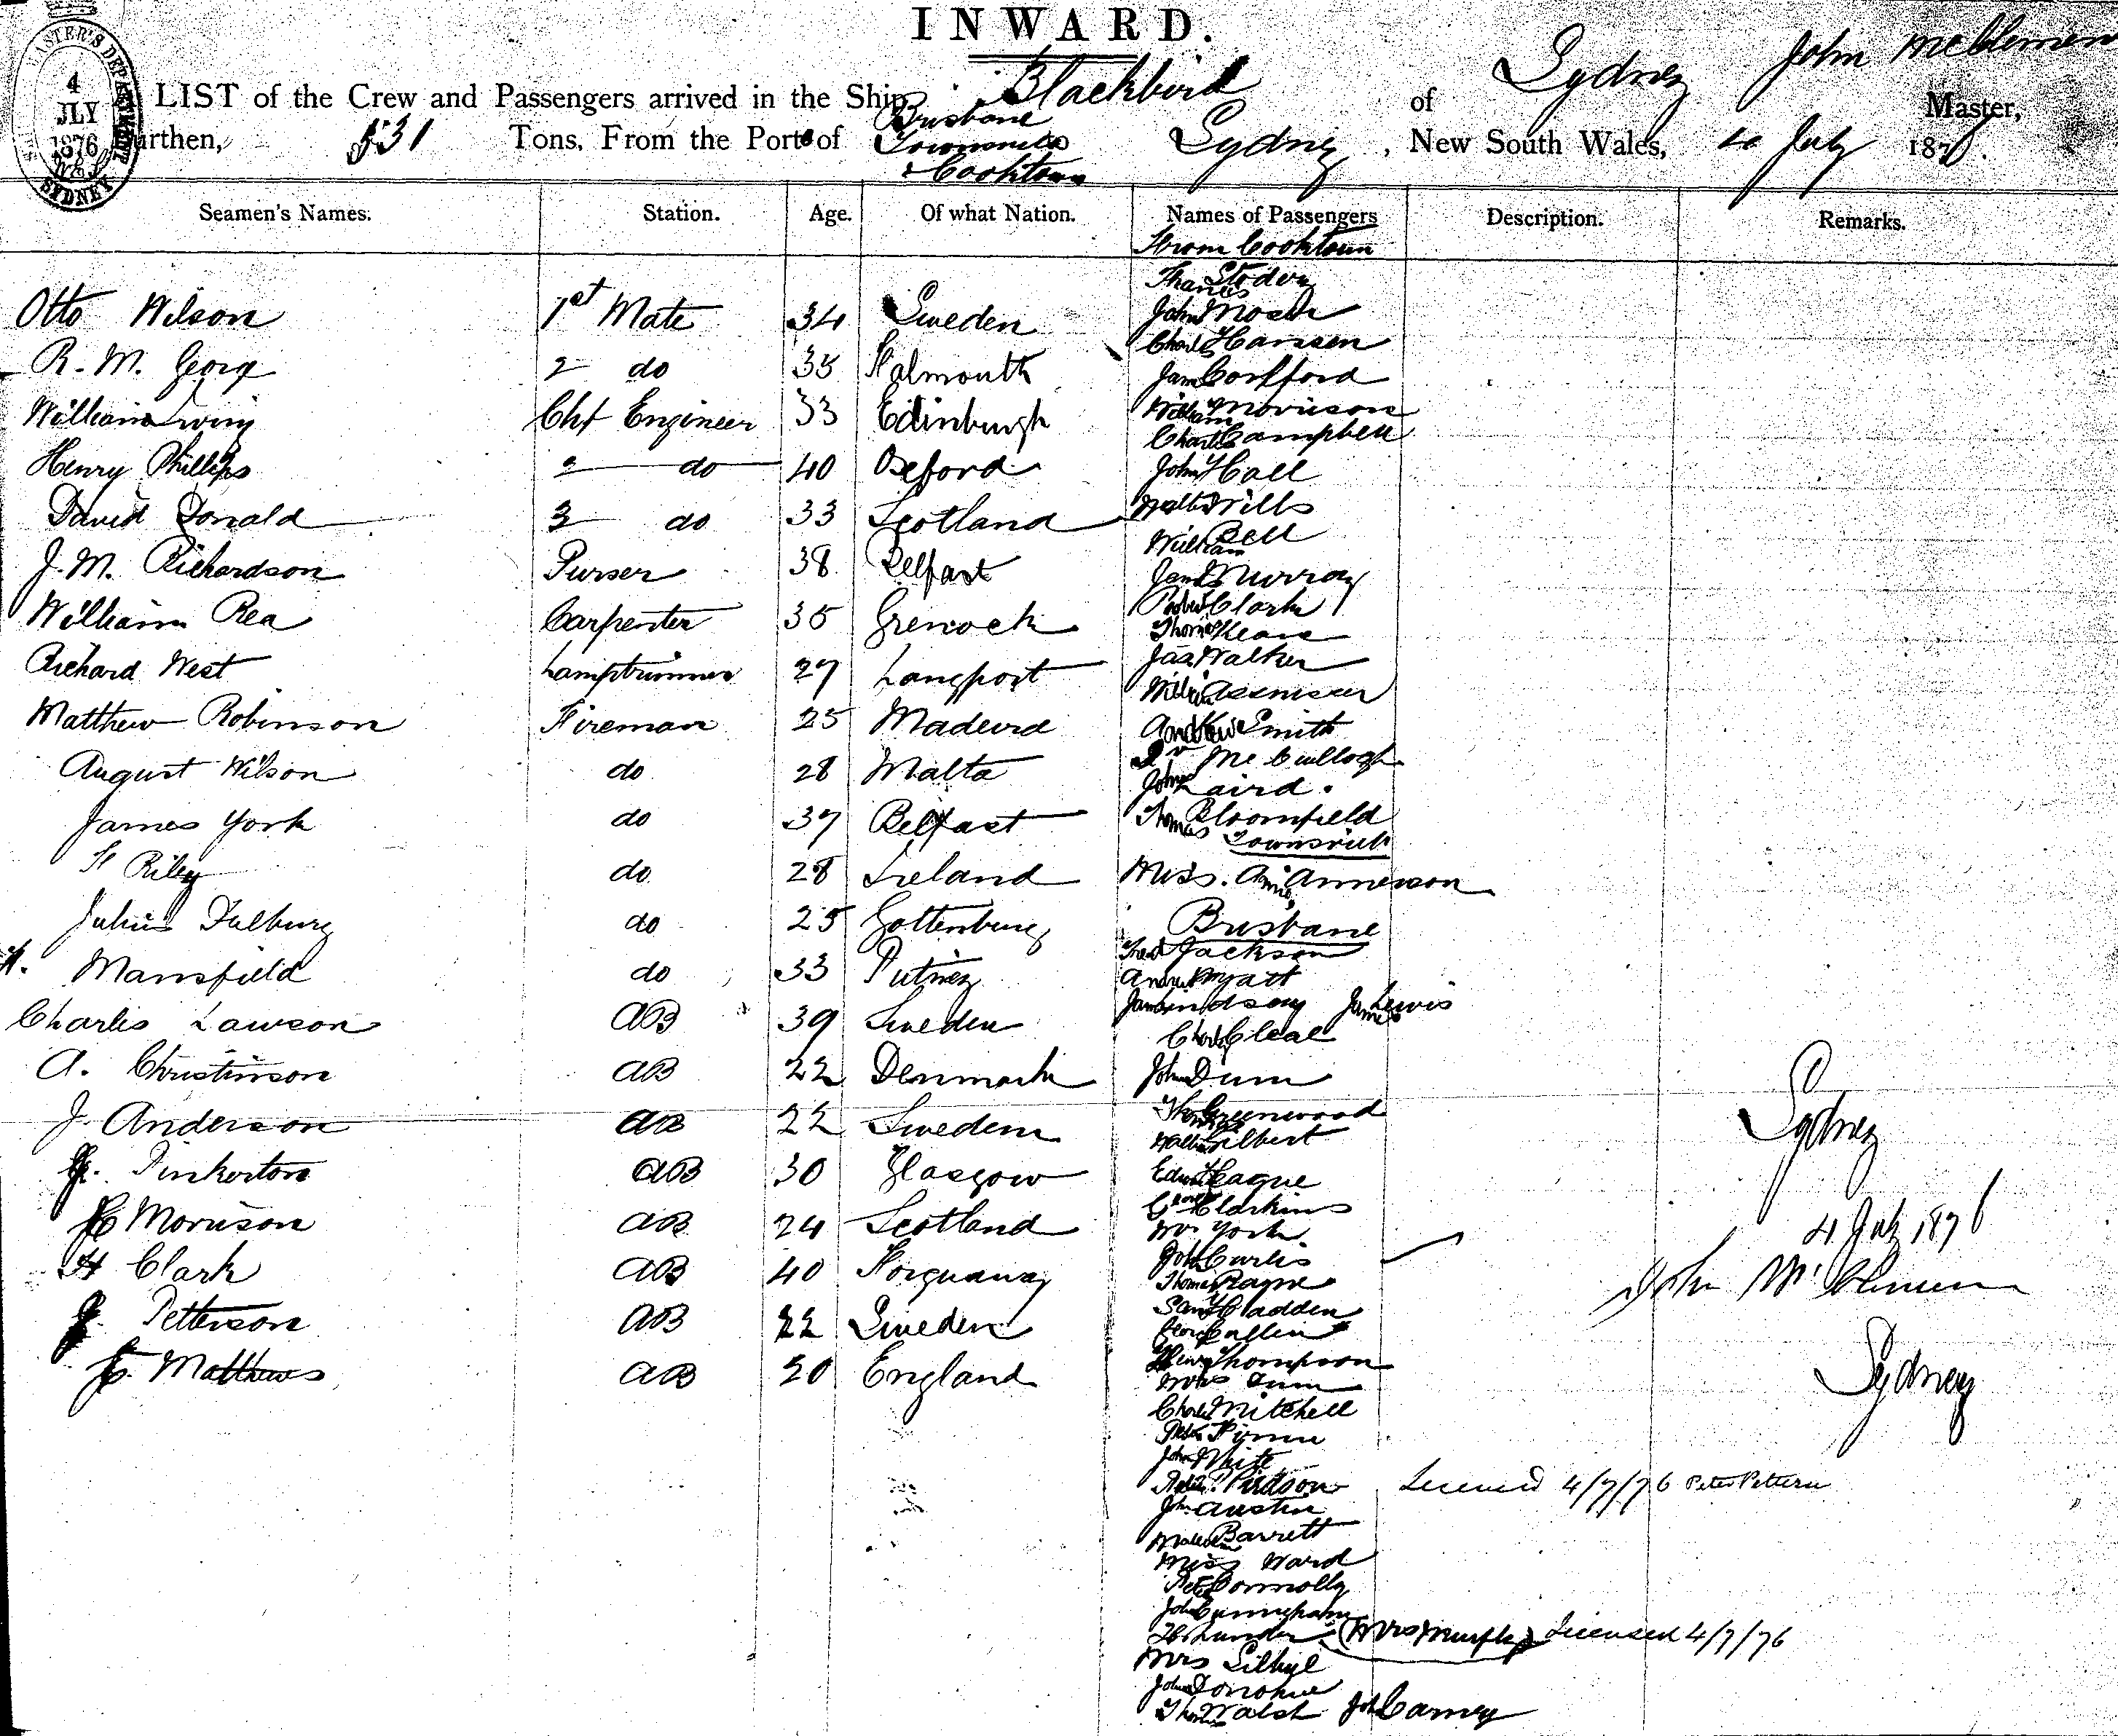 INWARD.
4
JLY
1876
SYDNEY
LIST of the Crew and Passengers arrived in the Ship Blackbird of Sydney John Master,
Burthen, 531 Tons, From the Ports of Brisbane Townsville & Cooktown Sydney, New South Wales, July 1876.
Seamen's Names. Station. Age. Of what Nation. Names of Passengers Description. Remarks.
From Cooktown
Otto Wilson 1st Mate 34 Sweden
R. M. Georg 2 do 35 Falmouth
William Chf Engineer 33 Edinburgh
Henry Phillips 2 do 40 Oxford
David Donald 3 do 33 Scotland
J. M. Richardson Purser 38 Belfast
William Rea Carpenter 35 Grenock
Richard West Lamptrimmer 27 Langport
Matthew Robinson Fireman 25 Madeira
August Wilson do 28 Malta
James York do 37 Belfast
F Riley do 28 Ireland
Julius do 25 Gottenburg
Mansfield do 33 Putney
Charles Lawson AB 39 Sweden
A. Christinson AB 22 Denmark
J. Anderson AB 22 Sweden
Pinkerton AB 30 Glasgow
Morrison AB 24 Scotland
H Clark AB 40 Norguaway
Petterson AB 22 Sweden
Matthews AB 20 England
Charles Hanssen
William Morrison
Charles Campbell
John Hall
Walter Wills
William Bell
James Murray
Robert Clark
Thomas Keane
Jas Walker
Andrew Smith
Dr McCullogh
John Laird.
Thomas Bloomfield
Townsville
Miss. Annie
Brisbane
Fred Jackson
Andrew Myatt
James Lindsay James Lewis
Charles Cleal
John Dunn
Thomas Greenwood
Walter Gilbert
Edward Hague
George Clarkins
Wm York
John Curtis
Thomas Rayne
Saml Gladden
George Cullen
Henry Thompson
Mrs Dunn
Charles Mitchell
Peter
John White
John Austin
Barrett
Miss Ward
Peter Connolly
John Cunningham
(Mrs Murphy) Licensed 4/7/76
Mrs
John Donohue
Thomas Walsh Joh Carney
4/7/76 Peter
Sydney
4 July 1876
John
Sydney